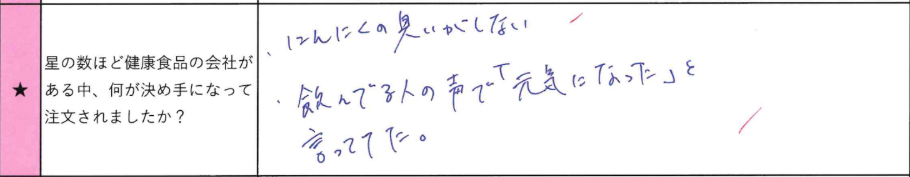 ★
星の数ほど健康食品の会社が
ある中、何が決め手になって
注文されましたか？
・にんにくの臭いがしない
・飲んでる人の声で「元気になった」と
言ってた。